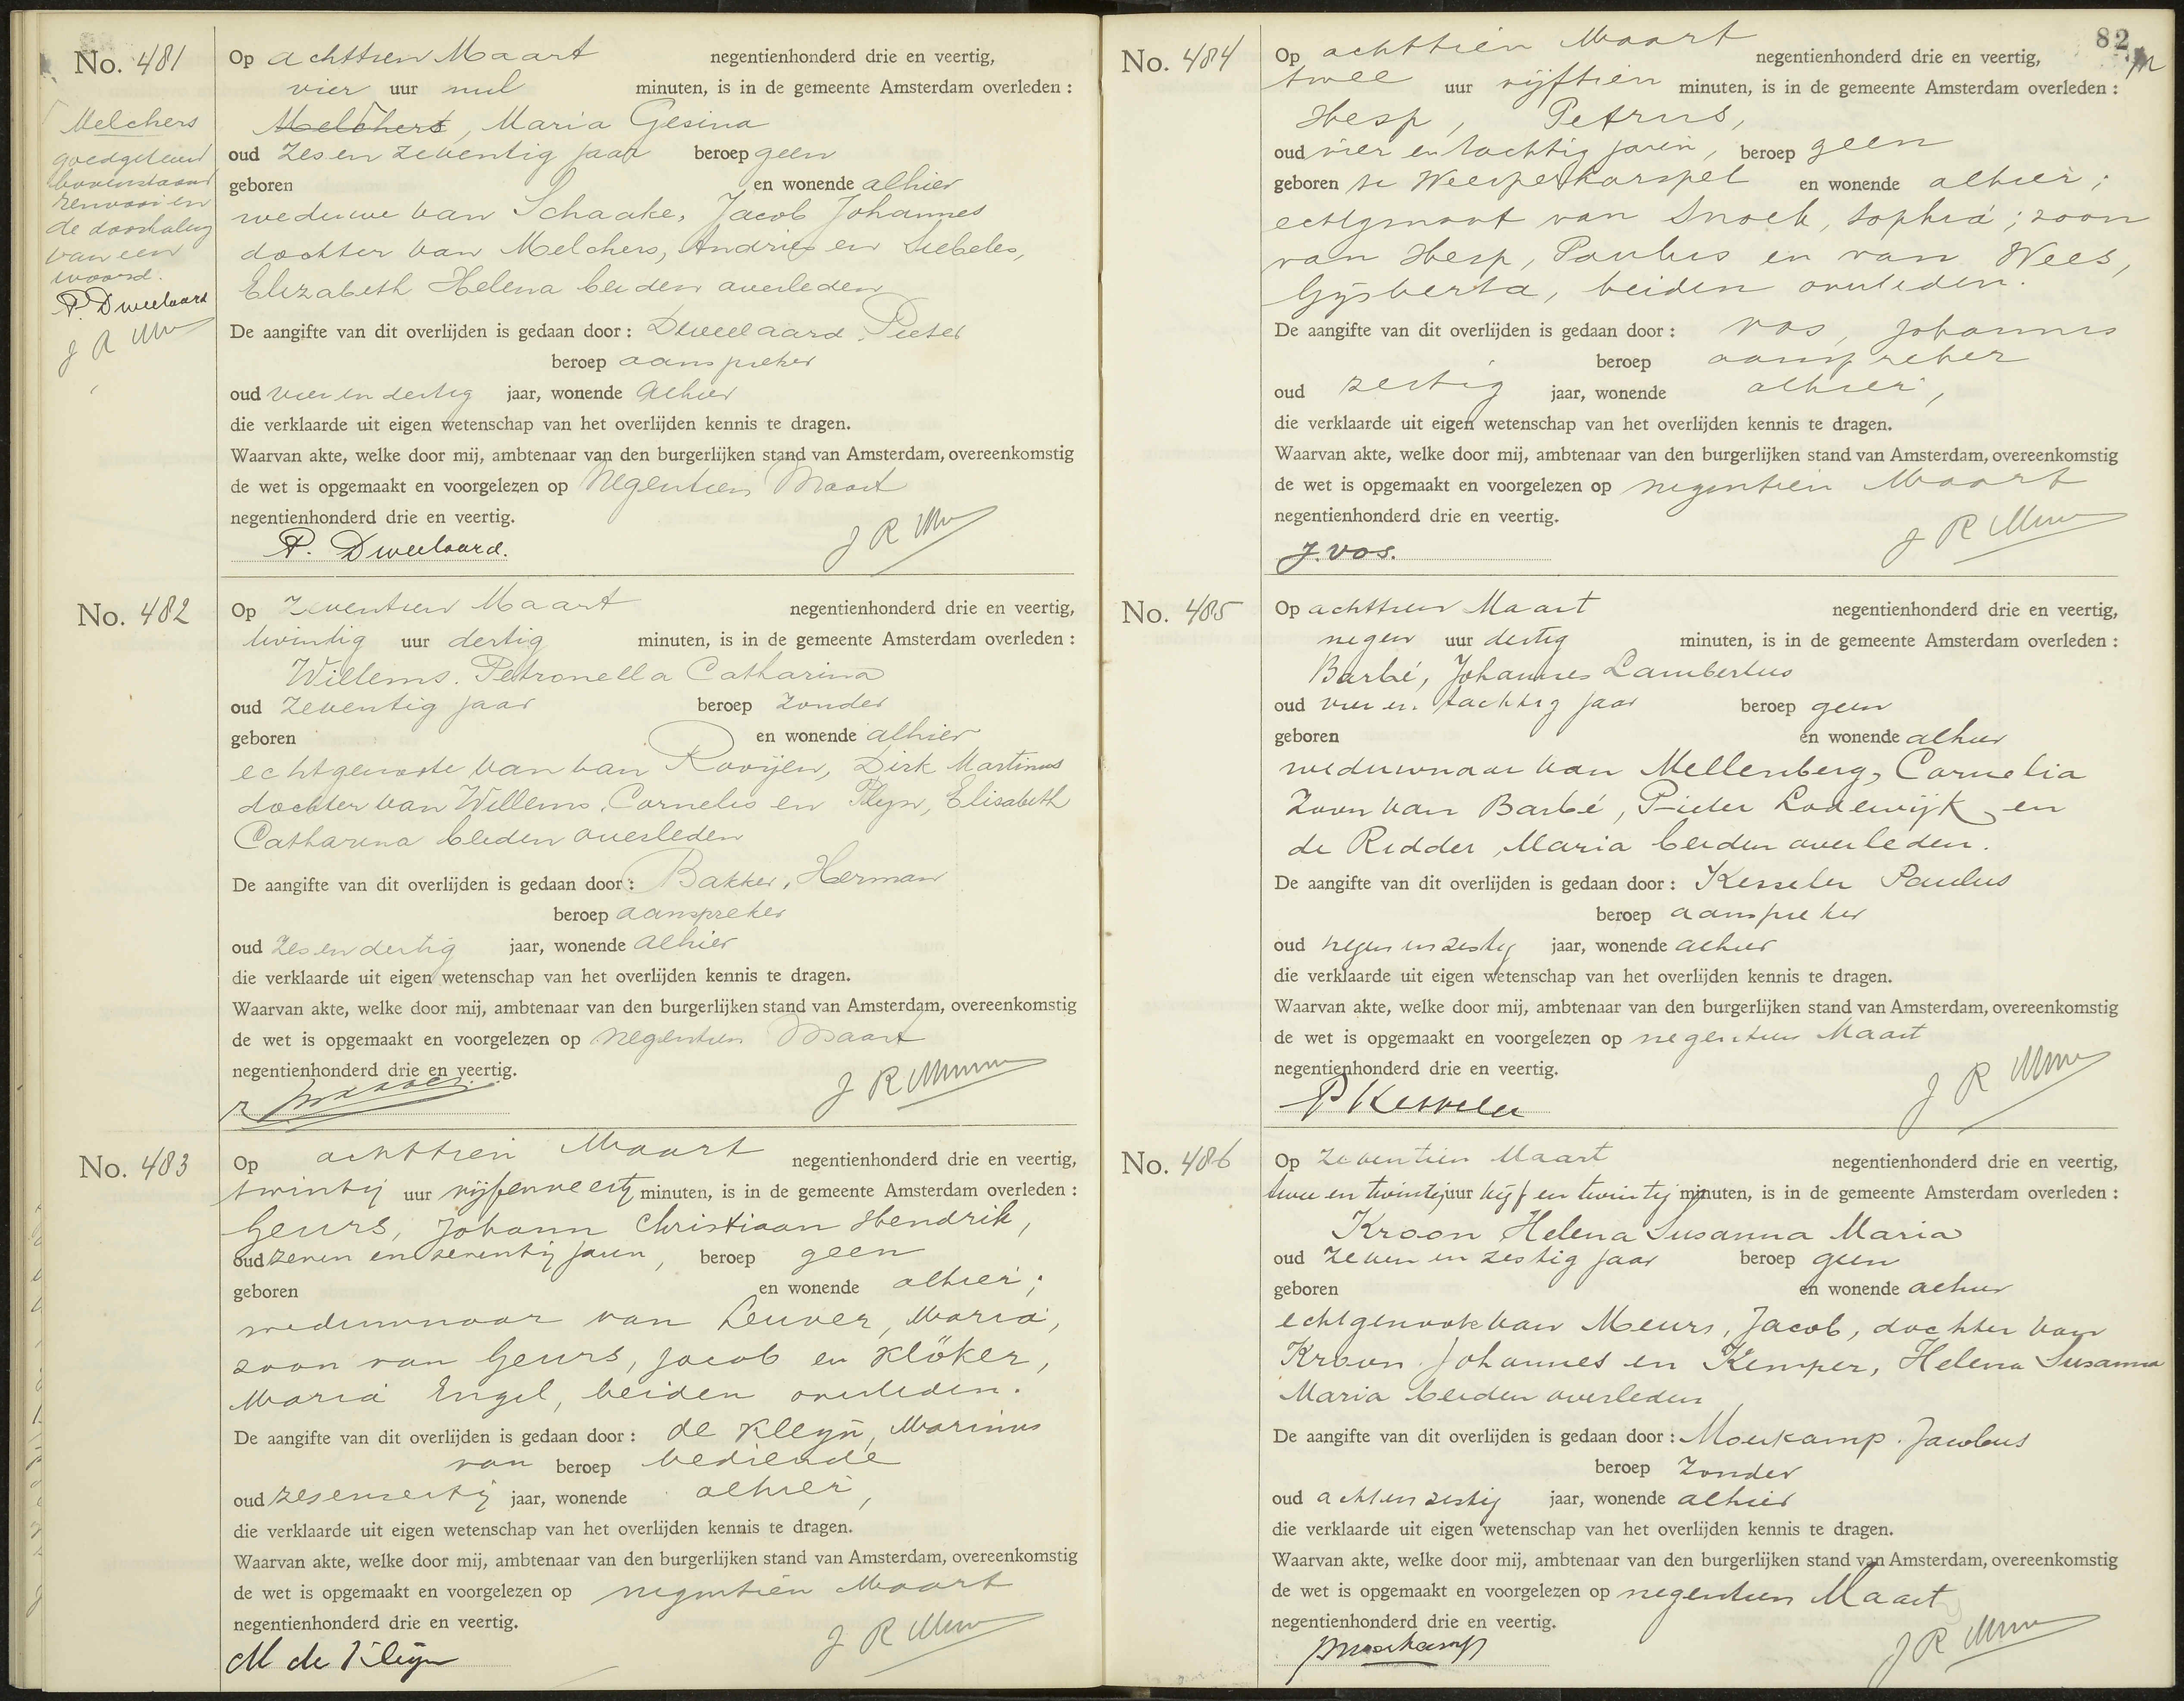 No. 481
Op achttien Maart negentienhonderd drie en veertig,
vier uur nul minuten, is in de gemeente Amsterdam overleden :
Melchers, Maria Gesina
oud zes en zeventig jaar beroep geen
geboren en wonende alhier
weduwe van Schaake, Jacob Johannes
dochter van Melchers, Andries en Siebeles,
Elizabeth Helena beiden overleden
De aangifte van dit overlijden is gedaan door : Dweelaard Pieter
beroep aanspreker
oud vier en dertig jaar, wonende alhier
die verklaarde uit eigen wetenschap van het overlijden kennis te dragen.
Waarvan akte, welke door mij, ambtenaar van den burgerlijken stand van Amsterdam, overeenkomstig
de wet is opgemaakt en voorgelezen op negentien Maart
negentienhonderd drie en veertig.
P. Dweelaard.
Melchers
goedgekeurd
bovenstaand
renvooi en
de doorhaling
van een
woord.
P. Dweelaard
No. 482
Op zeventien Maart negentienhonderd drie en veertig,
twintig uur dertig minuten, is in de gemeente Amsterdam overleden :
Willems. Petronella Catharina
oud zeventig jaar beroep zonder
geboren en wonende alhier
echtgenoote van van Rooijen, Dirk Martinus
dochter van Willems, Cornelis en Pleyn, Elisabeth
Catharina beiden overleden
De aangifte van dit overlijden is gedaan door : Bakker, Herman
beroep aanspreker
oud zes en dertig jaar, wonende alhier
die verklaarde uit eigen wetenschap van het overlijden kennis te dragen.
Waarvan akte, welke door mij, ambtenaar van den burgerlijken stand van Amsterdam, overeenkomstig
de wet is opgemaakt en voorgelezen op negentien Maart
negentienhonderd drie en veertig.
No. 483
Op achttien Maart negentienhonderd drie en veertig,
twintig uur vijfenveertig minuten, is in de gemeente Amsterdam overleden :
Geurs, Johann Christiaan Hendrik,
oud zeven en zeventig jaren, beroep geen
geboren en wonende alhier;
weduwnaar van Leuver, Maria,
zoon van Geurs, Jacob en Klöker,
Maria Engel, beiden overleden.
De aangifte van dit overlijden is gedaan door : de Kleyn, Marinus
van beroep bediende
oud zesenveertig jaar, wonende alhier,
die verklaarde uit eigen wetenschap van het overlijden kennis te dragen.
Waarvan akte, welke door mij, ambtenaar van den burgerlijken stand van Amsterdam, overeenkomstig
de wet is opgemaakt en voorgelezen op negentien Maart
negentienhonderd drie en veertig.
M de Kleyn
82
No. 484
Op achttien Maart negentienhonderd drie en veertig,
twee uur vijftien minuten, is in de gemeente Amsterdam overleden :
Hesp, Petrus,
oud vier en tachtig jaren, beroep geen
geboren te Weesperkarspel en wonende alhier;
echtgenoot van Snoek, Sophia; zoon
van Hesp, Paulus en van Wees,
Gijsberta, beiden overleden.
De aangifte van dit overlijden is gedaan door : Vos, Johannes
beroep aanspreker
oud zestig jaar, wonende alhier,
die verklaarde uit eigen wetenschap van het overlijden kennis te dragen.
Waarvan akte, welke door mij, ambtenaar van den burgerlijken stand van Amsterdam, overeenkomstig
de wet is opgemaakt en voorgelezen op negentien Maart
negentienhonderd drie en veertig.
J. Vos.
No. 485
Op achttien Maart negentienhonderd drie en veertig,
negen uur dertig minuten, is in de gemeente Amsterdam overleden :
Barbé, Johannes Lambertus
oud vier en tachtig jaar beroep geen
geboren en wonende alhier
weduwnaar van Mellenberg, Cornelia
Zoon van Barbé, Pieter Lodewijk en
de Ridder, Maria beiden overleden.
De aangifte van dit overlijden is gedaan door : Kesseler Paulus
beroep aanspreker
oud negen en zestig jaar, wonende alhier
die verklaarde uit eigen wetenschap van het overlijden kennis te dragen.
Waarvan akte, welke door mij, ambtenaar van den burgerlijken stand van Amsterdam, overeenkomstig
de wet is opgemaakt en voorgelezen op negentien Maart
negentienhonderd drie en veertig.
P Kesseler
No. 486
Op zeventien Maart negentienhonderd drie en veertig,
twee en twintig uur vijf en twintig minuten, is in de gemeente Amsterdam overleden :
Kroon Helena Susanna Maria
oud zeven en zestig jaar beroep geen
geboren en wonende alhier
echtgenoote van Meurs, Jacob, dochter van
Kroon Johannes en Kemper, Helena Susanna
Maria beiden overleden
De aangifte van dit overlijden is gedaan door : Moerkamp. Jacobus
beroep zonder
oud acht en zestig jaar, wonende alhier
die verklaarde uit eigen wetenschap van het overlijden kennis te dragen.
Waarvan akte, welke door mij, ambtenaar van den burgerlijken stand van Amsterdam, overeenkomstig
de wet is opgemaakt en voorgelezen op negentien Maart
negentienhonderd drie en veertig.